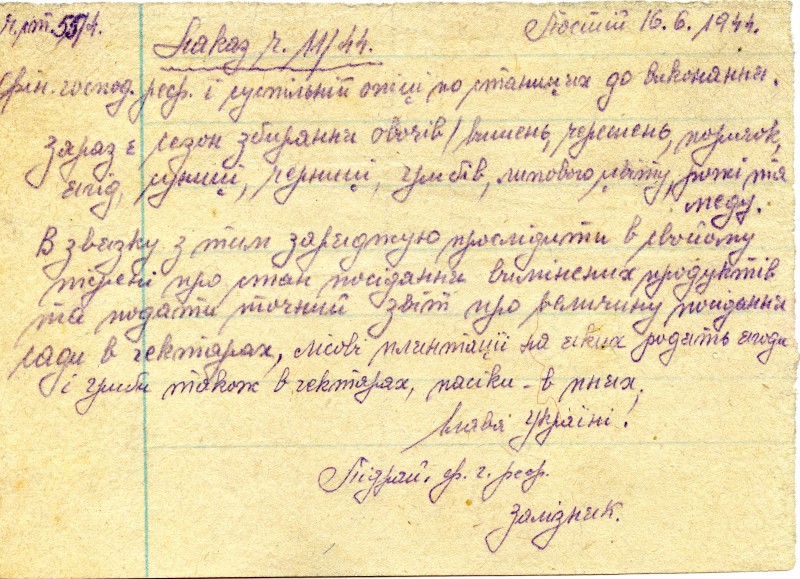 Ч.пт. 55/4. Постій 16.6.1944.
Наказ ч. 11/44.
Фін. господ. реф. і суспільній опіці по станицях до виконання.
Зараз є сезон збирання овочів / вишень, черешень, порічок,
ягід, суниці, черниці, грибів, липового цвіту, рожі та
меду.
В звязку з тим заряджую прослідити в свойому
терені про стан посідання вимінених продуктів
та подати точний звіт про величину посідання
сади в гектарах, лісові плянтації на яких родить ягоди
і гриби також в гектарах, пасіки – в пнях.
Слава Україні!
Підрай. ф. г. реф.
Залізник.